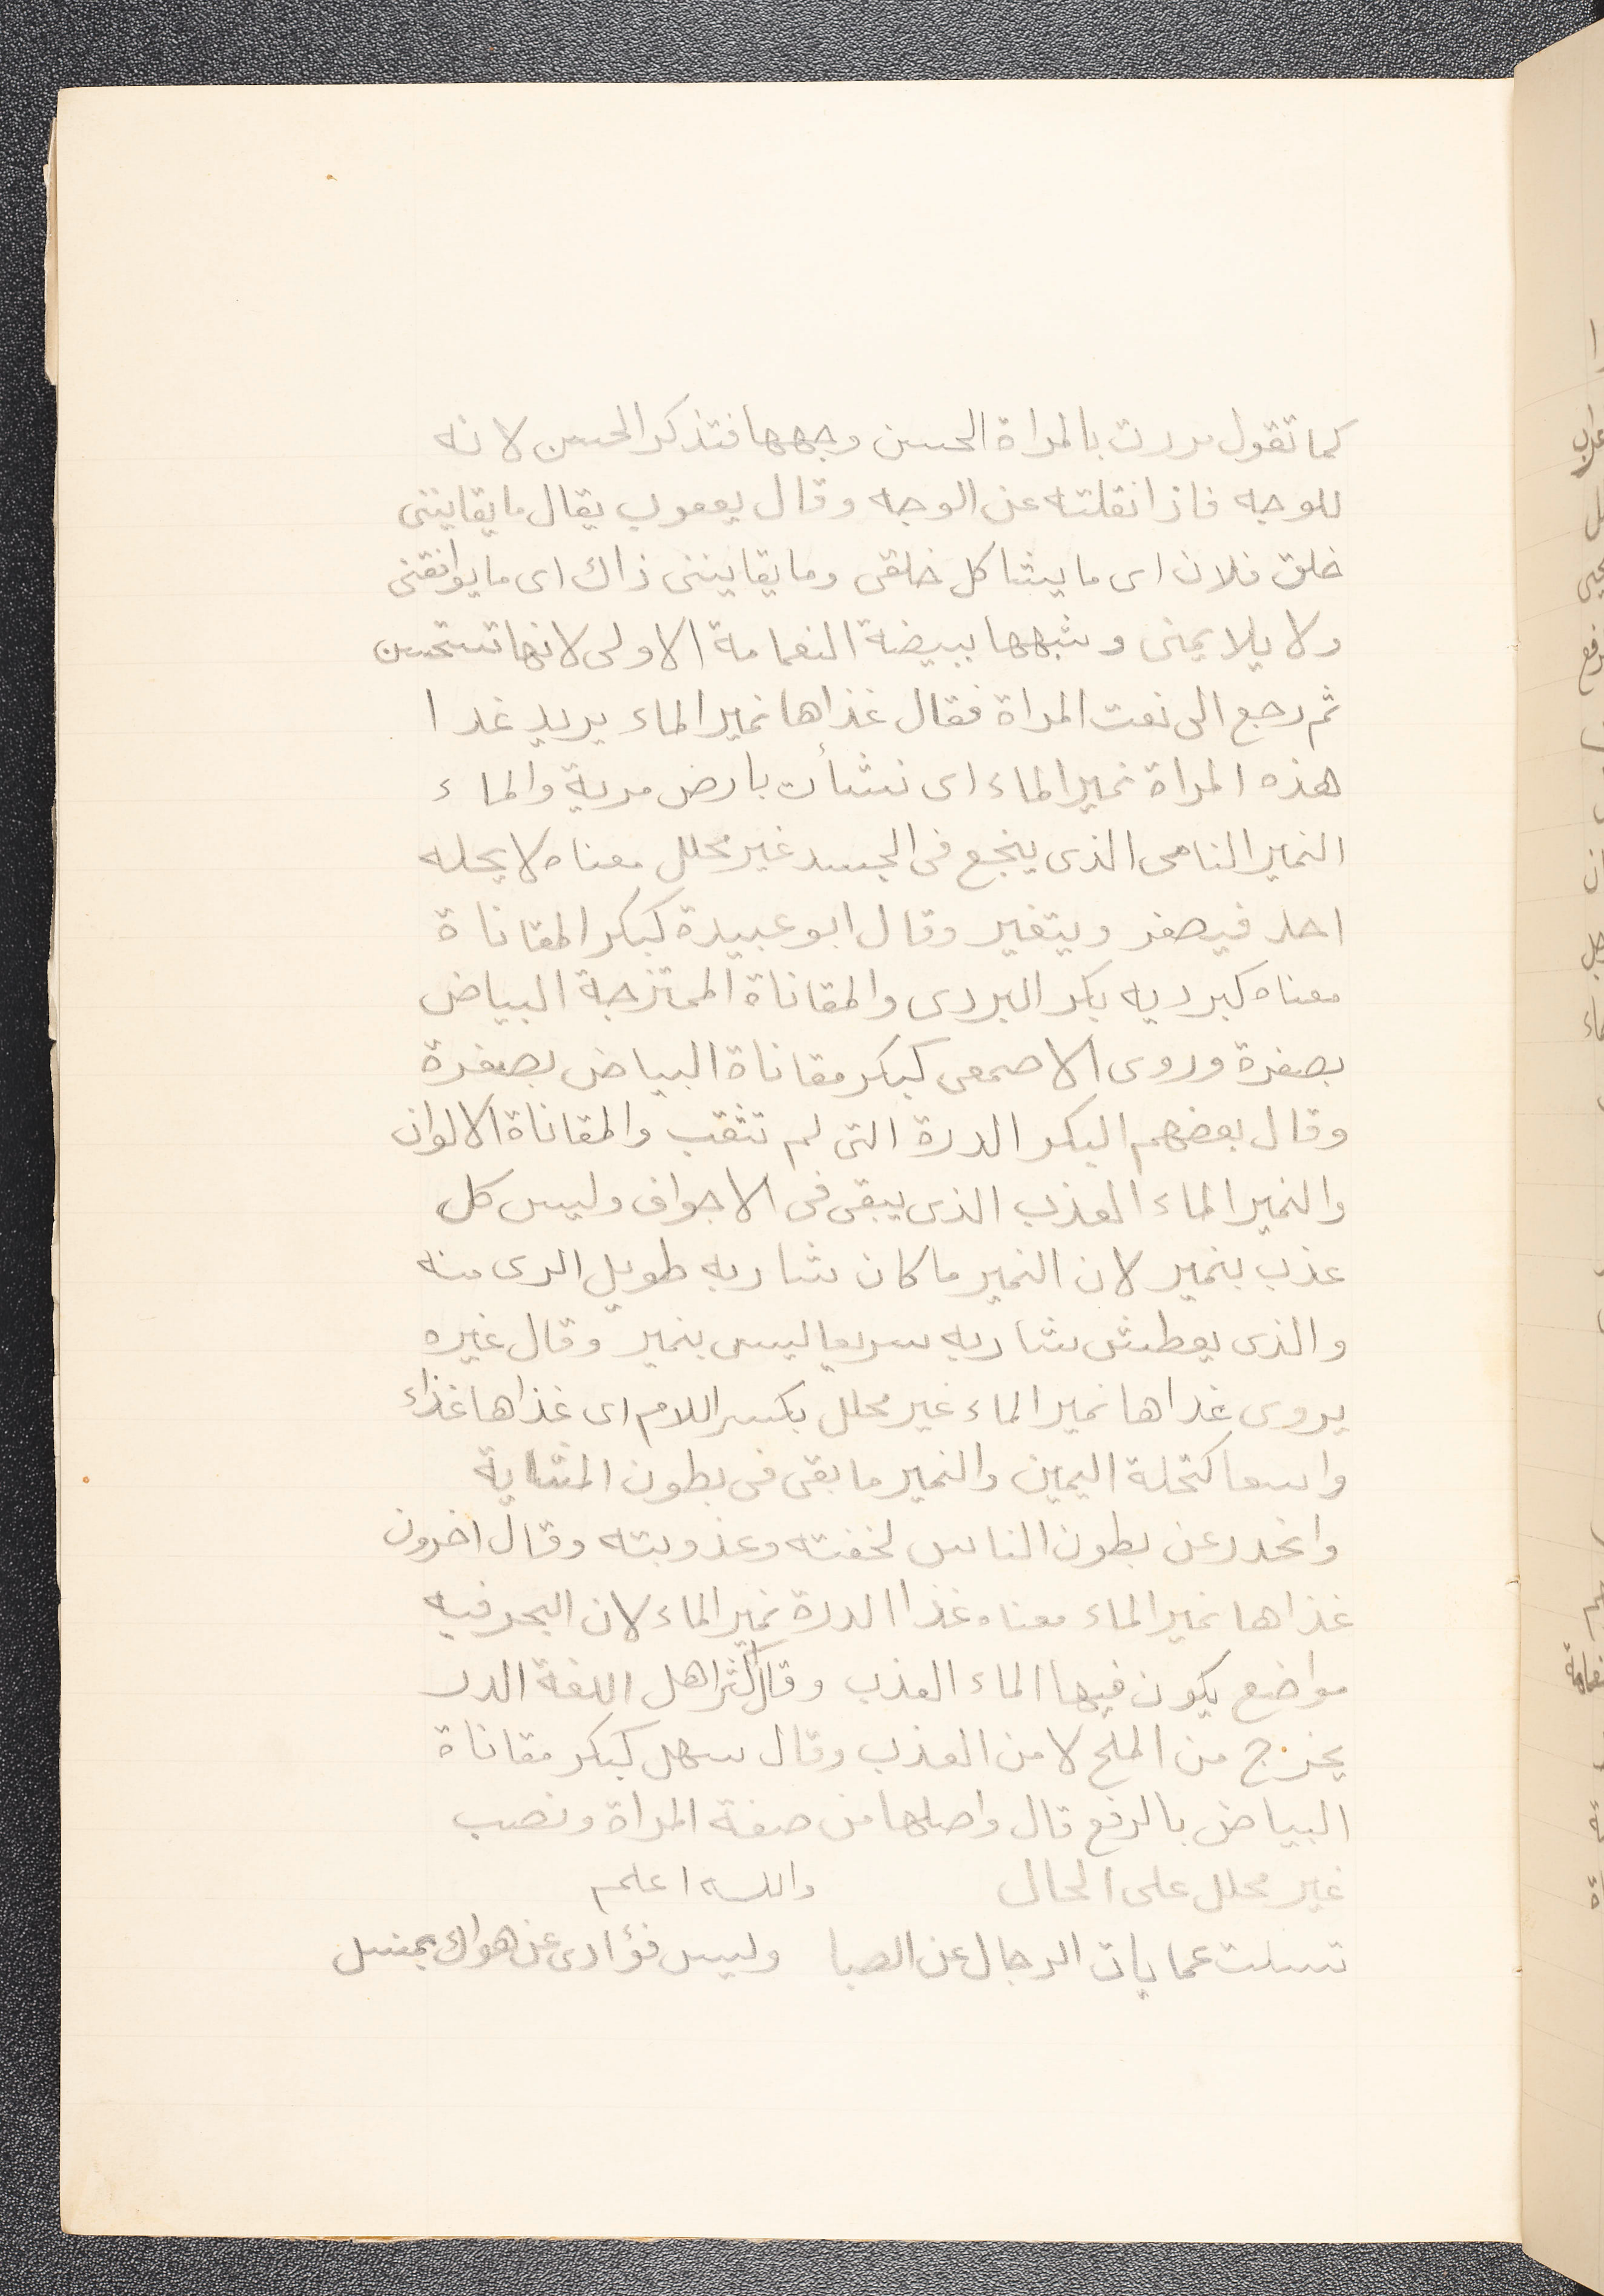 كما تقول مررت بالمراة الحسن وجهها فتذكر الحسن لانه
للوجه فاذا نقلته عن الوجه وقال يعقوب يقال ما يقانينى
خلق فلان اى ما يشاكل خلقى وما يقانينى ذاك اى ما يوافقنى
ولا يلايمنى وشبهها ببيضة النعمامة الاولى لانها تستحسن
ثم رجع الى نعت المراة فقال غذاها نمير الماء يريد غدا
هذه المراة نمير الماء اى نشأت بارض مرية والماء
النمير النامى الذى ينجع فى الجسد غير محلل معناه لا يحله
احد فيصفر ويتغير وقال ابو عبيدة كبكر المقاناة
معناه كبرديه بكر البردى والمقاناة الممتزجة البياض
بصفرة وروى الاصمعى كبكر مقاناة البياض بصفرة
وقال بعضهم البكر الدرة التى لم تثقب والمقاناة الالوان
والنمير الماء العذب الذى يبقى فى الاجواف وليس كل
عذب بنمير لان النمير ما كان شاربه طويل الرى منه
والذى يعطش شاربه سريعا ليس بنمير وقال غيره
يروى غداها نمير الماء غير محلل بكسر اللام اى غذاها غذاء
واسعا كتحلة اليمين والنمير ما بقى فى بطون الماشية
وانحدر عن بطون الناس لخفته وعذوبته وقال اخرون
غذاها نمير الماء معناه غذا الدرة نمير الماء لان البحر فيه
مواضع يكون فيها الماء العذب وقال اكثر اهل اللغة الدر
يخرج من الملح لا من العذب وقال سهل كبكر مقاناة
البياض بالرفع قال واصلها من صفة المراة ونصب
غير محلل على الحال والله اعلم
تسلت عمايات الرجال عن الصبا وليس فؤادى عن هواك بمنسل